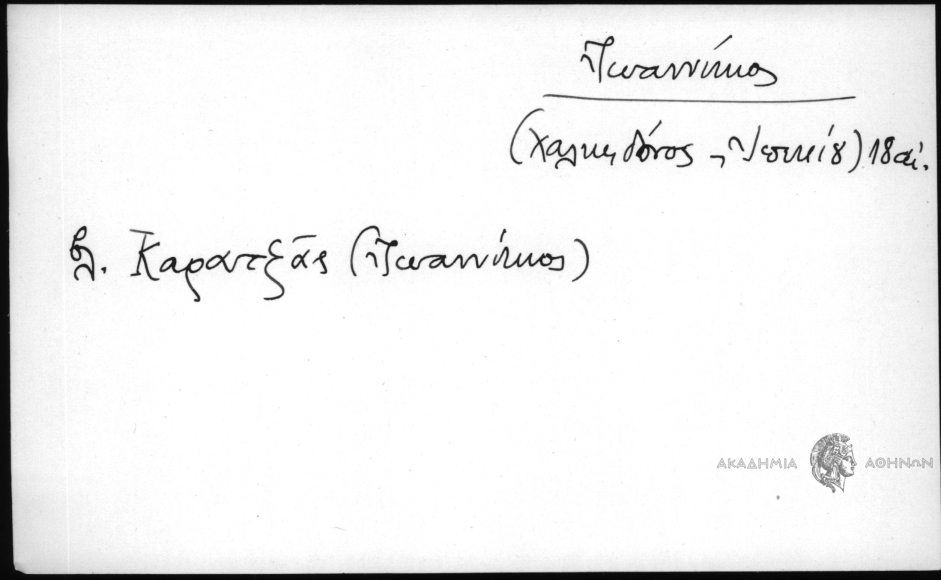 Ἰωαννίκιος
(Χαλκηδόνος 18 αἰ.
βλ. Καρατζᾶς (Ἰωαννίκιος)
ΑΚΑΔΗΜΙΑ ΑΘΗΝΩΝ